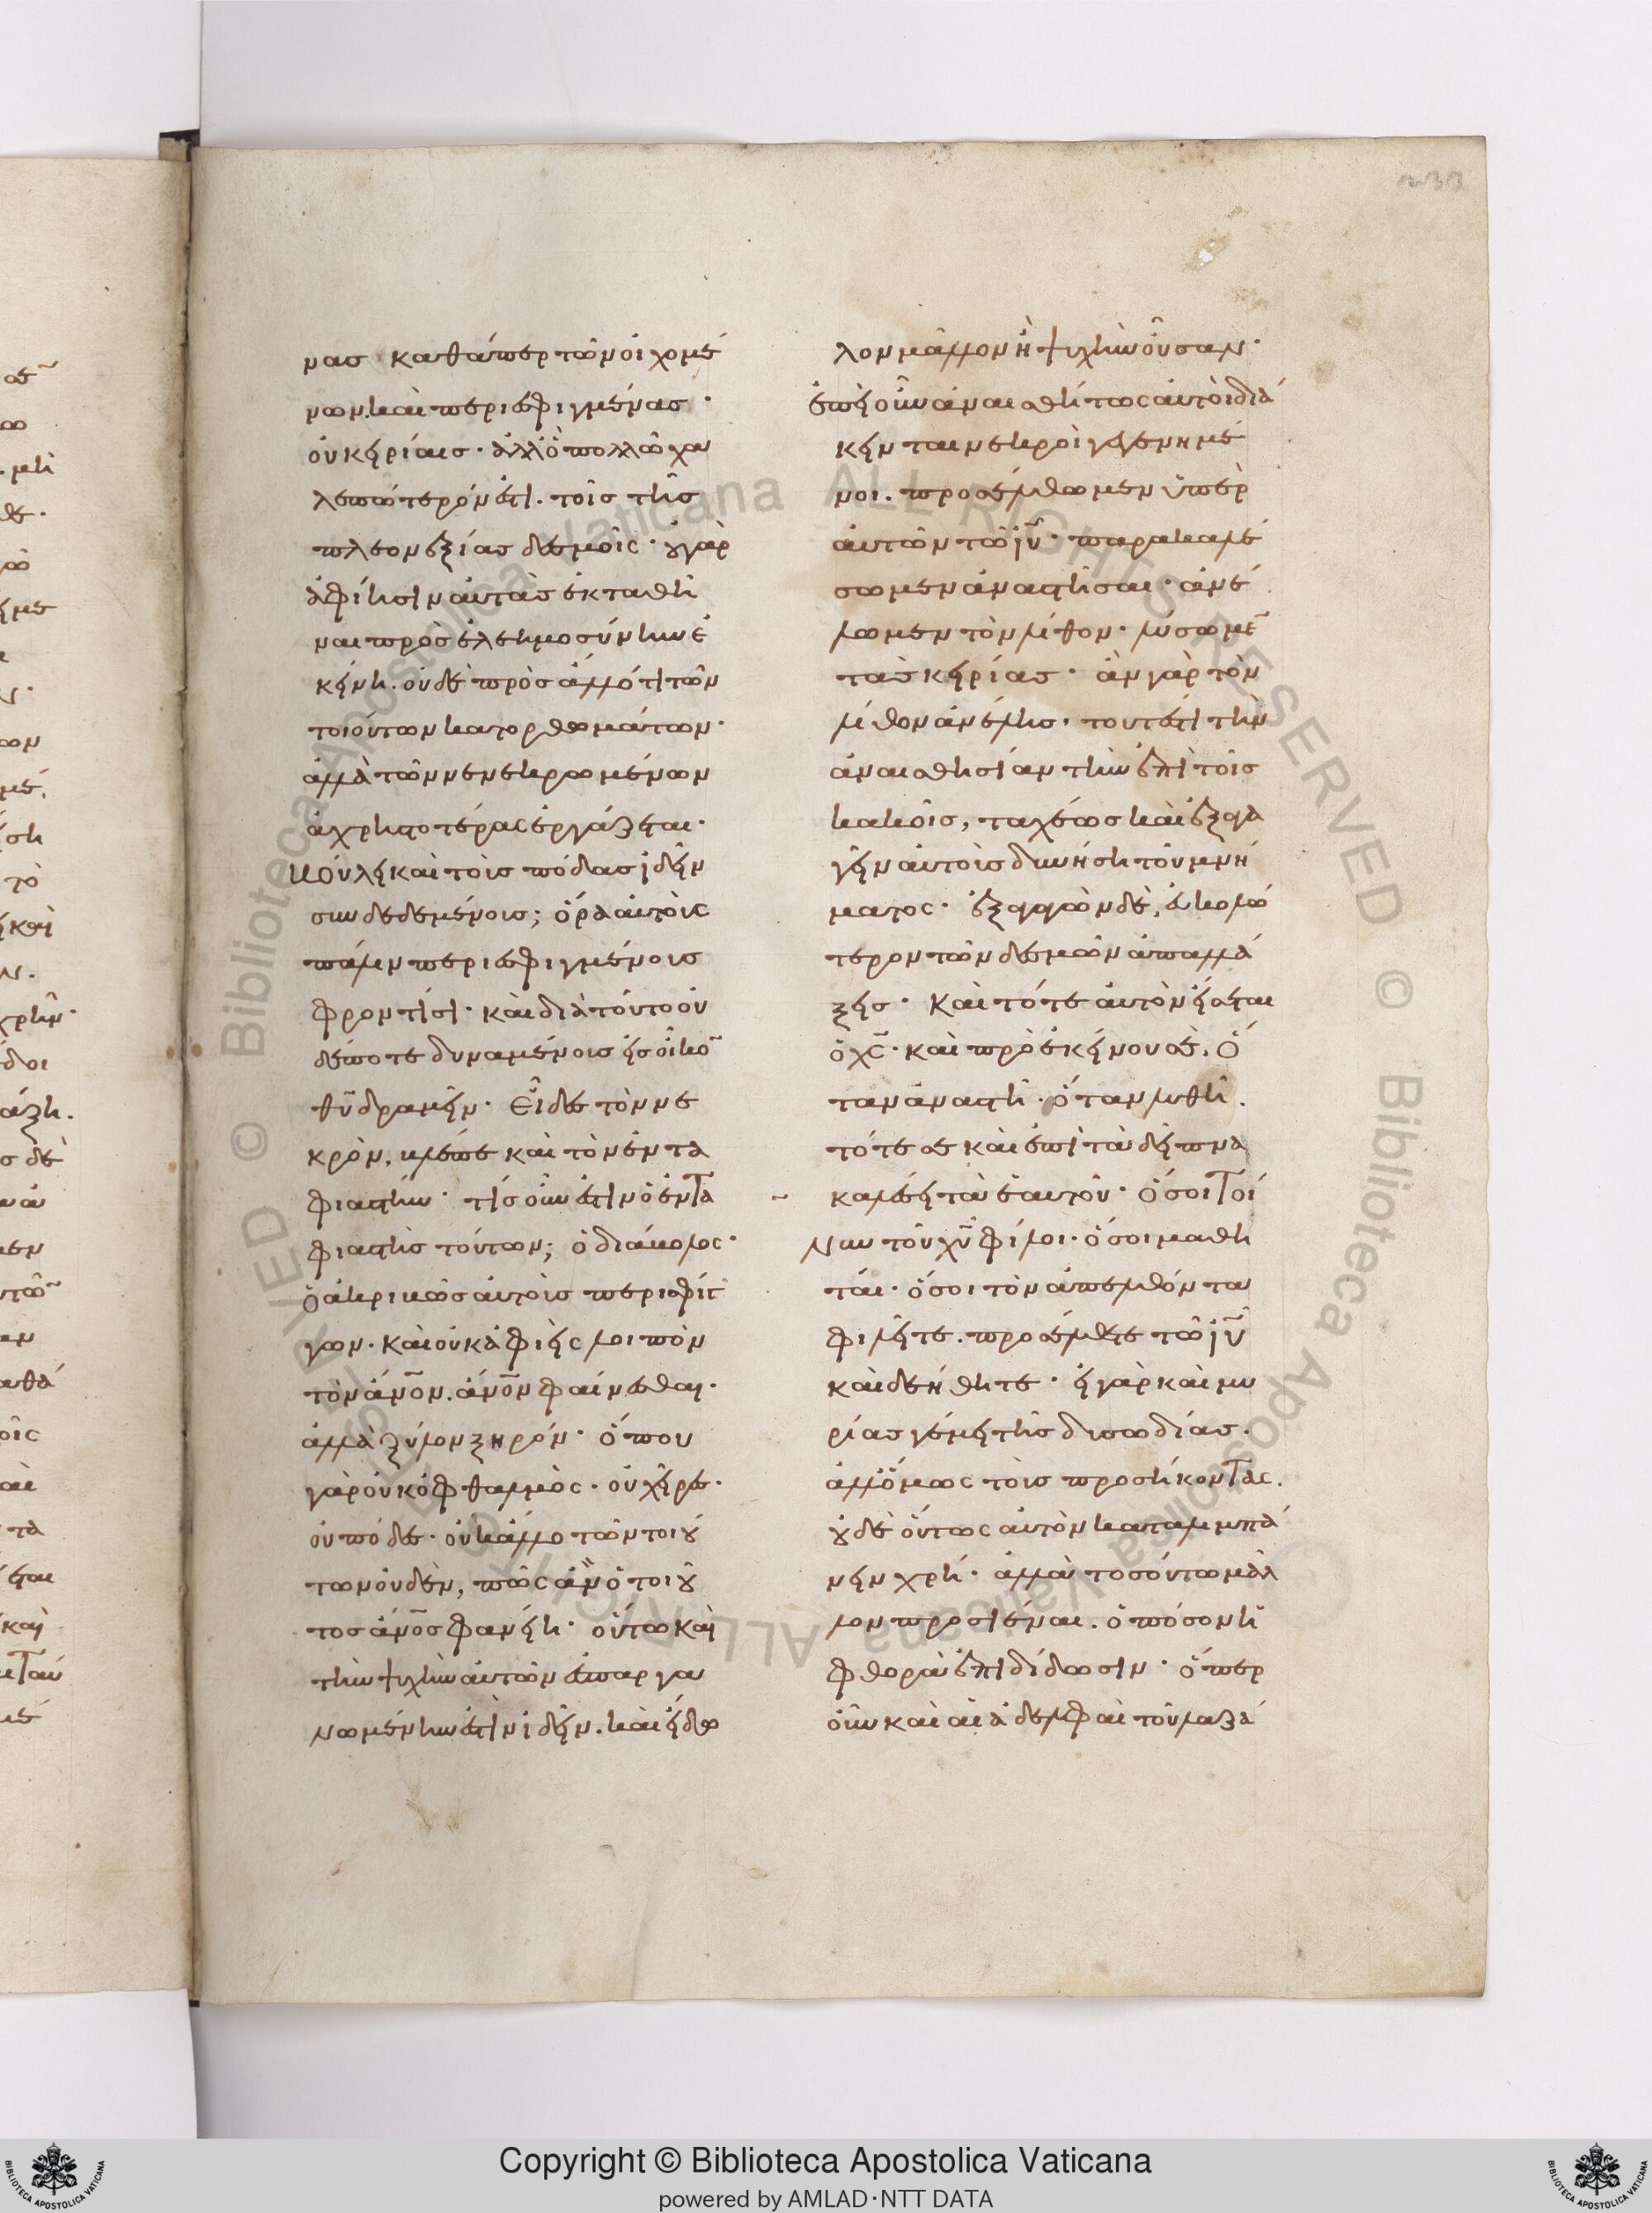 νας καθάπερ τῶν οἰχομέ
νων. καὶ περιεσφιγμένας ·
οὐ κειρίαις · ἀλλ' ὃ πολλῶ χα
λεπώτερόν ἐστι. τοῖς τῆς
πλεονεξίας δεσμοῖς · οὐ γὰρ
ἀφίησιν αὐτὰς ἐκταθῆ
ναι πρὸς ἐλεημοσύνην ἐ
κείνη. οὐδὲ πρὸς ἄλλό τι τῶν
τοιούτων κατορθωμάτων ·
ἀλλὰ τῶν νενεκρωμένων
ἀχρηστοτέρας ἐργάζεται ·
Βούλει καὶ τοὺς πόδας ἰδεῖν
συνδεδεμένους; ὅρα αὐτοὺς
πάλιν περιεσφιγμένους
φροντίσι · καὶ διὰ τοῦτο οὐ
δέποτε δυναμένους εἰς οἶκον
θυ̅ δραμεῖν · Εἶδες τὸν νε
κρὸν, βλέπε καὶ τὸν ἐντα
φιαστήν · τίς οὖν ἐστιν ὁ ἐντα
φιαστὴς τούτων; ὁ διάβολος ·
ὁ ἀκριβῶς αὐτοὺς περισφίγ
γων · καὶ οὐκ ἀφιεὶς λοιπὸν
τὸν ἄνο̅ν. ἄνο̅ν φαίνεσθαι ·
ἀλλὰ ξύλον ξηρόν · ὅπου
γὰρ οὐκ ὀφθαλμὸς · οὐ χεῖρες ·
οὐ πόδες · οὐκ ἄλλο τῶν τοιού
των οὐδὲν, πῶς ἂν ὁ τοιοῦ
τος ἄνο̅ς φανείη · οὕτω καὶ
τὴν ψυχὴν αὐτῶν ἐσπαργα
νωμένην ἐστὶν ἰδεῖν. καὶ εἴδω
λον μᾶλλον ἢ ψυχὴν οὖσαν ·
ἐπεὶ οὖν ἀναισθήτως αὐτοὶ διά
κεινται νεκροὶ γεγενημέ
νοι. προσέλθωμεν ὑπὲρ
αὐτῶν τῶ ἰυ̅ · παρακαλέ
σωμεν ἀναστῆσαι · ἀνέ
λωμεν τὸν λίθον · λύσωμεν
τὰς κειρίας · ἂν γὰρ τὸν
λίθον ἀνέλης · τουτέστι τὴν
ἀναισθησίαν τὴν ἐπὶ τοῖς
κακοῖς, ταχέως καὶ ἐξαγα
γεῖν αὐτοὺς δυνήση τοῦ μνή
ματος · ἐξαγαγὼν δὲ, εὐκολώ
τερον τῶν δεσμῶν ἀπαλλά
ξεις · Καὶ τότε αὐτὸν εἴσεται
ὁ χς̅ · καὶ πρὸς ἐκεῖνον σε. ὅ
ταν ἀναστῆ · ὅταν λυθῆ.
τότε σε καὶ ἐπὶ τὰ δεῖπνα
καλέσει τὰ ἑαυτοῦ · Ὅσοι τοί
νυν τοῦ χυ̅ φίλοι · ὅσοι μαθη
ταί · ὅσοι τὸν ἀπελθόντα
φιλεῖτε. προσέλθετε τῶ ἰυ̅
καὶ δεήθητε · εἰ γὰρ καὶ μυ
ρίας γέμει τῆς δυσωδίας.
ἀλλ' ὅμως τοὺς προσήκοντας.
οὐδὲ οὕτως αὐτὸν καταλιμπά
νειν χρή · ἀλλὰ τοσούτω μᾶλ
λον προσιέναι. ὁπόσον ἡ
φθορὰ ἐπιδίδωσιν · ὅπερ
οὖν καὶ αἱ ἀδελφαὶ τοῦ λαζά
Copyright © Biblioteca Apostolica Vaticana
powered by AMLAD·NTT DATA